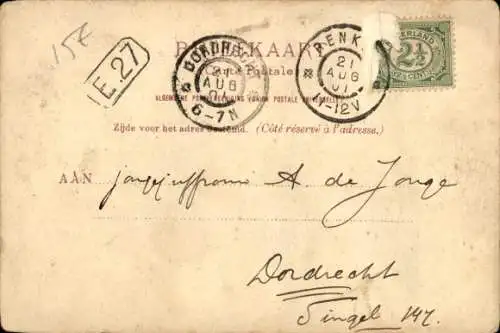 15€
E.27
BRIEFKAART
(Carte Postale)
ALGEMEENE POSTVEREENIGING (UNION POSTALE UNIVERSELLE)
Zijde voor het adres bestemd. (Côté réservé à l'adresse.)
DORDRECHT
21
AUG
01
6-7N
RENK
21
AUG
01
11-12V
NEDERLAND
2½
CENT
AAN Jongejuffrouw A de Jonge
Dordrecht
Singel 147.